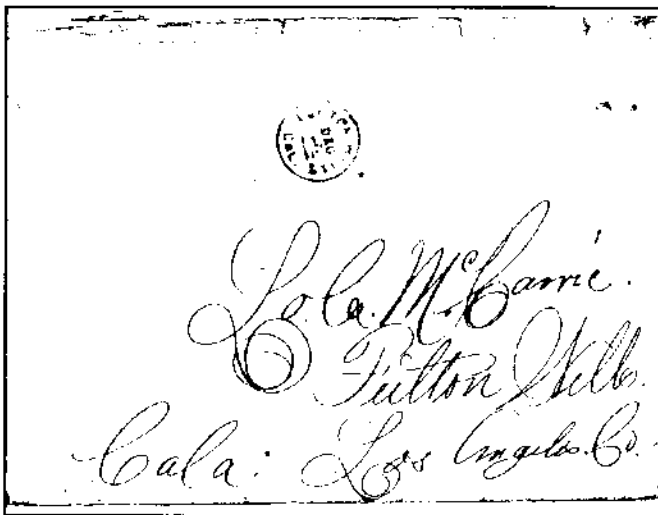 CAL.
DEC
Lola. McCarrie.
Fulton Wells.
Cala: Los Angeles. Co.